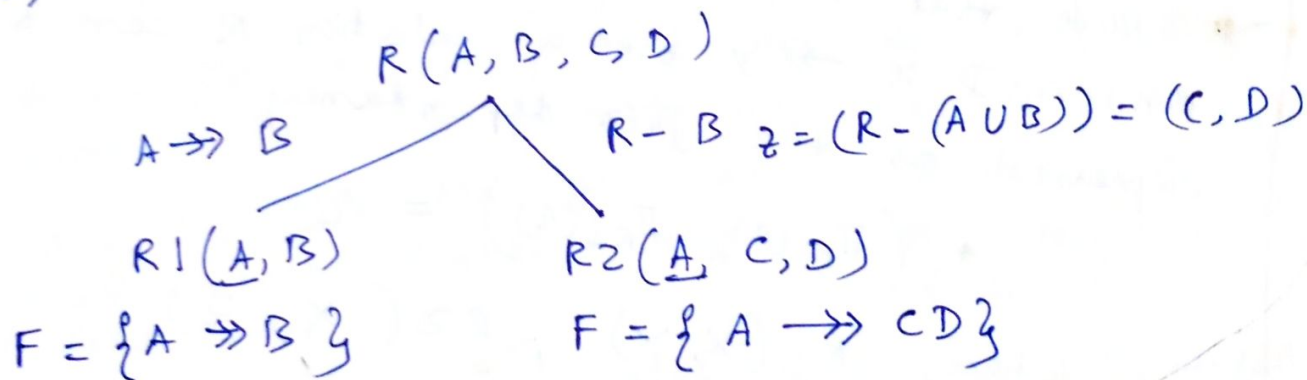 R(A, B, C, D)
A ->> B
R - B z = (R - (A ∪ B)) = (C, D)
R1(A, B)
R2(A, C, D)
F = {A ->> B}
F = {A ->> CD}